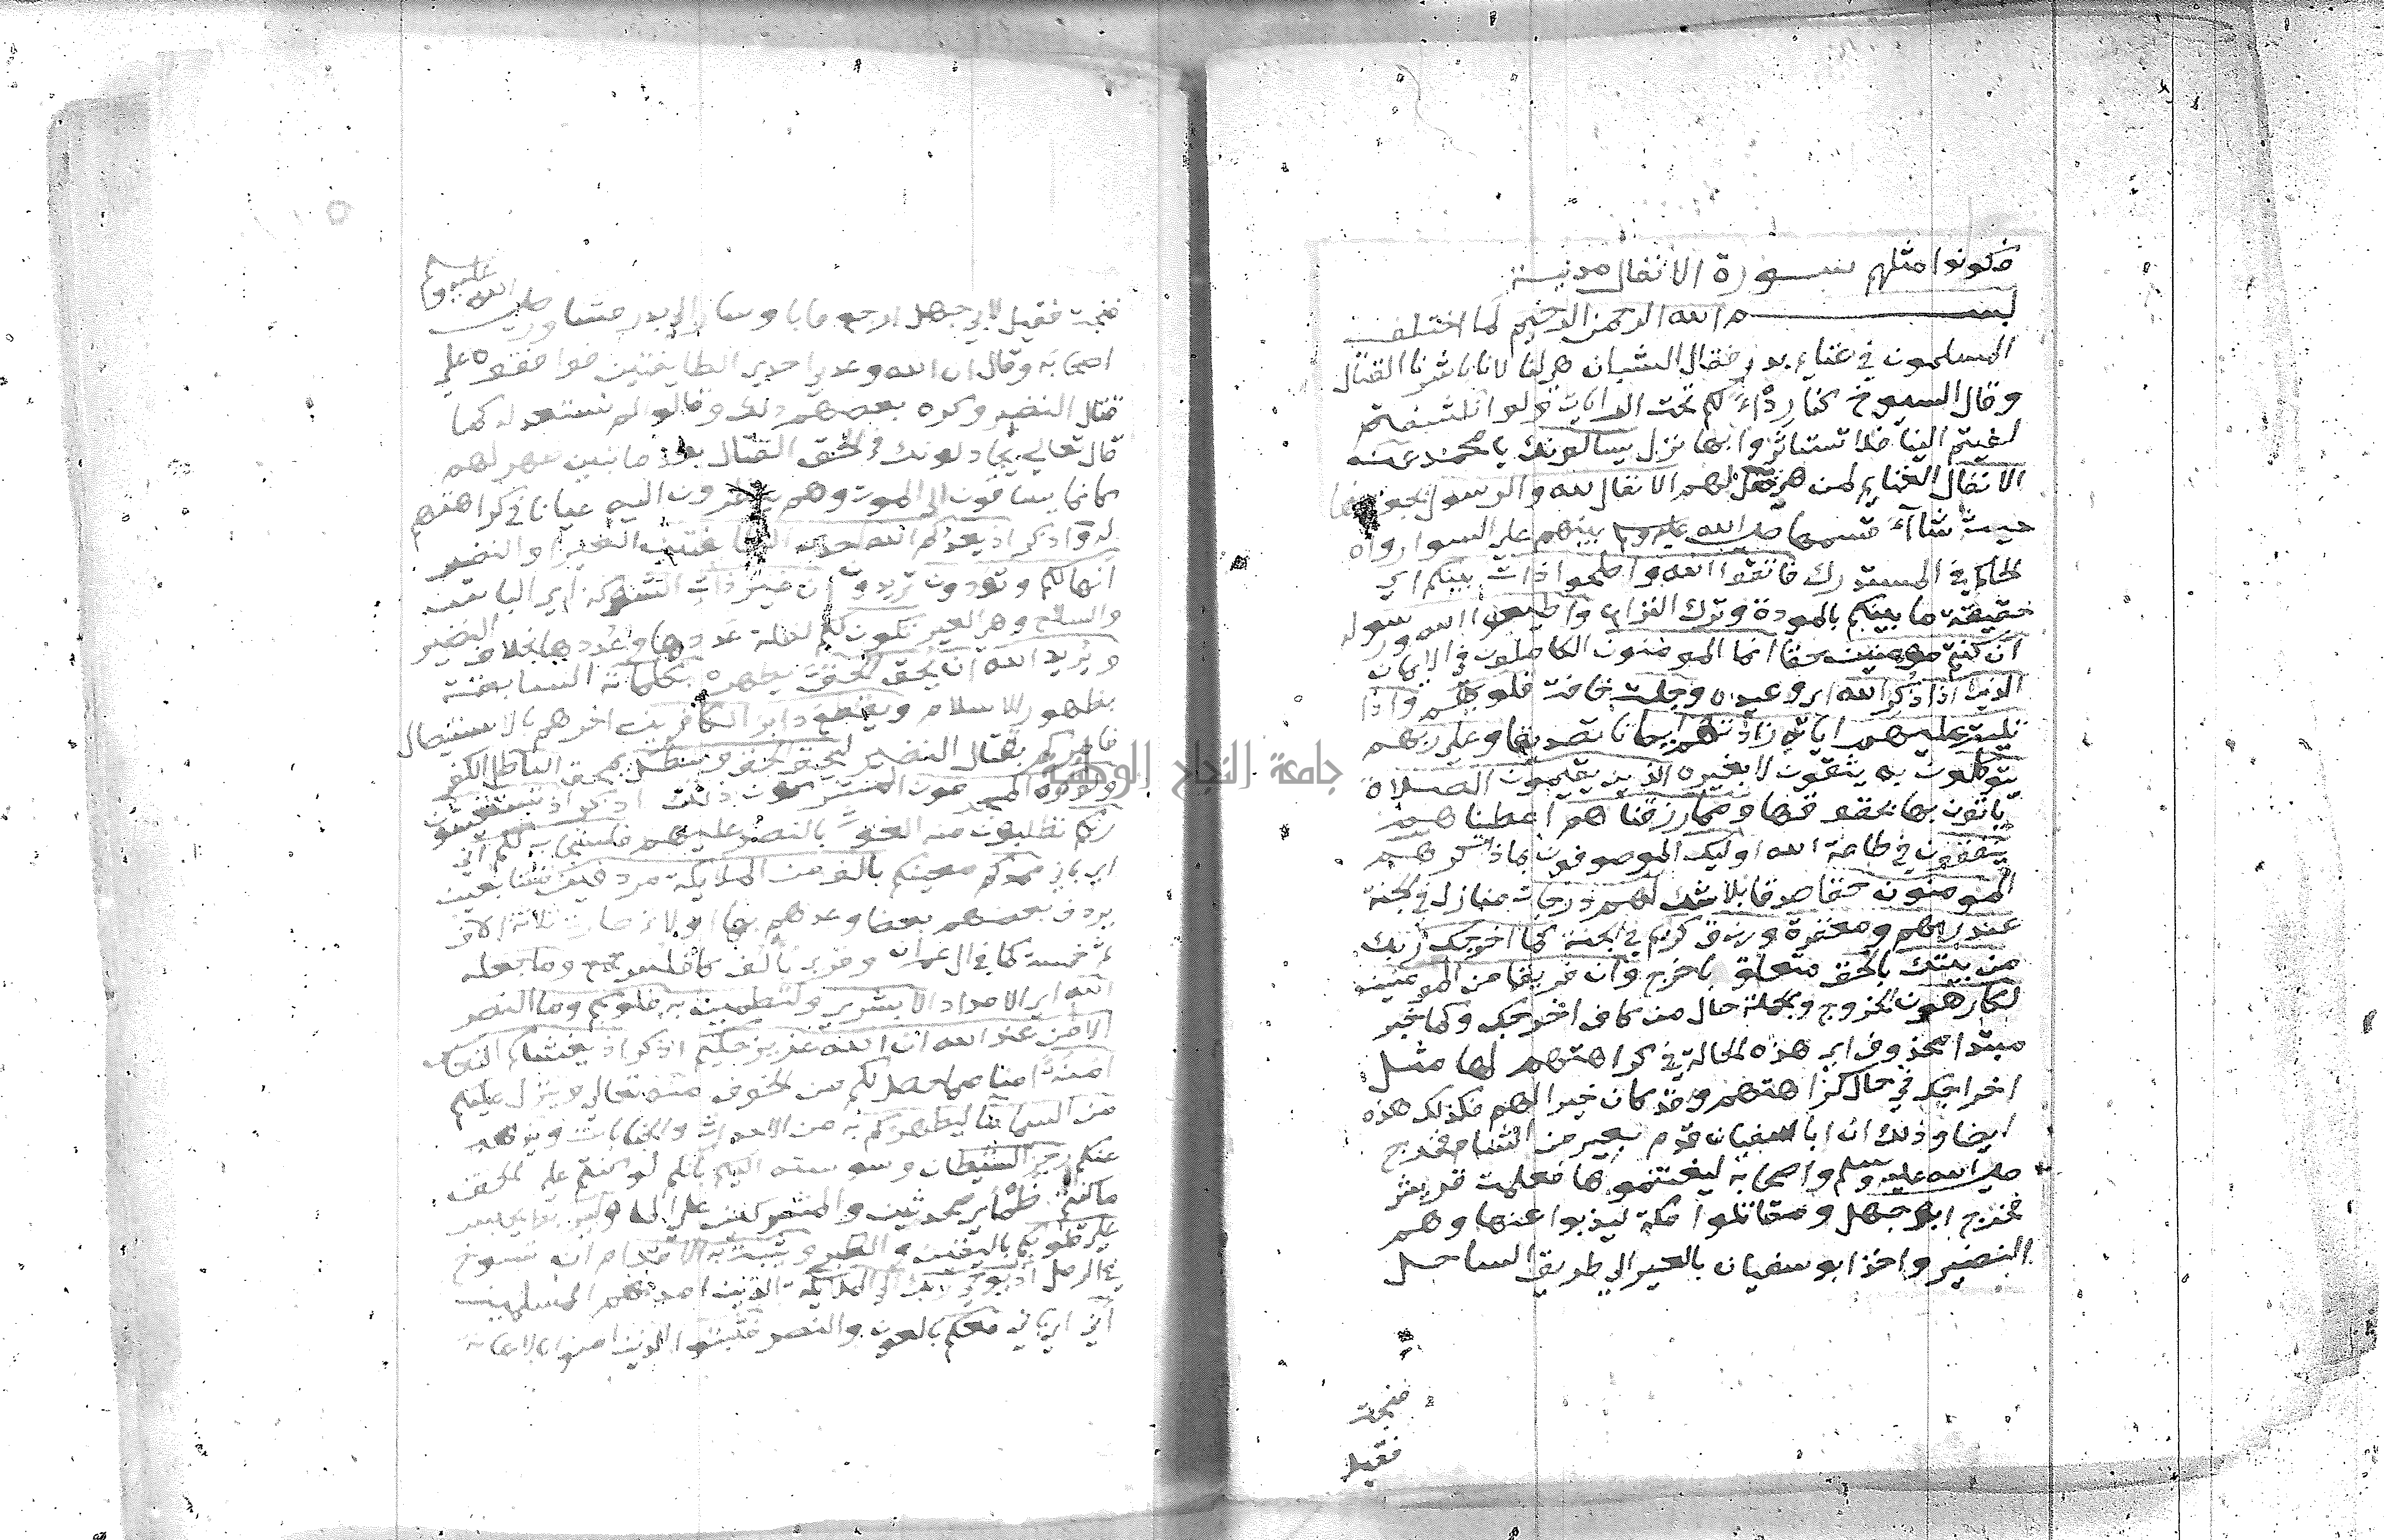 فكونوا مثلهم سورة الانفال مدنية
بسم الله الرحمن الرحيم لما اختلف
المسلمون في غنايم بدر فقال الشبان هي لنا لانا باشرنا القتال
وقال الشيوخ كنا ردءا لكم تحت الرايات ولو انكشفتم
لفيتم الينا فلا تستاثروا بها نزل يسالونك يا محمد عن
الانفال الغنايم لمن هي قل لهم الانفال لله والرسول يجعلونها
حيث شاآء فقسمها صلى الله عليه وسلم بينهم على السوا رواه
الحاكم في المستدرك فاتقوا الله واصلحوا ذات بينكم اي
حقيقة ما بينكم بالمودة وترك النزاع واطيعوا الله ورسوله
ان كنتم مومنين حقا انما المومنون الكاملون في الايمان
الذين اذا ذكر الله اي وعيده وجلت خافت قلوبهم واذا
تليت عليهم اياته زادتهم ايمانا تصديقا وعلى ربهم
يتوكلون به يثقون لا بغيره الذين يقيمون الصلاة
ياتون بها بحقوقها ومما رزقناهم اعطيناهم
ينفقون في طاعة الله اوليك الموصوفون بما ذكر هم
المومنون حقا صدقا بلا شك لهم درجات منازل في الجنة
عند ربهم ومغفرة ورزق كريم في الجنة كما اخرجك ربك
من بيتك بالحق متعلق باخرج وان فريقا من المومنين
لكارهون الخروج والجملة حال من كاف اخرجك وكما خبر
مبتدا محذوف اي هذه الحالة في كراهتهم لها مثل
اخراجك في حال كراهتهم وقد كان خيرا لهم فكذلك هذه
ايضا وذلك ان ابا سفيان قدم بعير من الشام فخرج
صلى الله عليه وسلم واصحابه ليغتنموها فعلمت قريش
فخرج ابو جهل ومقاتلوا مكة ليذبوا عنها وهم
النفير واخذ ابو سفيان بالعير الى طريق الساحل
فنجت
فقيل
جامعة النجاح الوطنية
فنجت فقيل لابي جهل ارجع فابا وسار الي بدر فشاور صلى الله عليه وسلم
اصحابه وقال ان الله وعدني احدى الطايفتين فوافقوه على
قتال النفير وكره بعضهم ذلك وقالوا لم نستعد له كما
قال تعالي يجادلونك في الحق القتال بعد ما تبين ظهر لهم
كانما يساقون الى الموت وهم ينظرون اليه عيانا في كراهتهم
له واذكر اذ يعدكم الله احدى الطايفتين العير او النفير
انها لكم وتودون تريدون ان غير ذات الشوكة اي الباس
والسلاح وهي العير تكون لكم لقلة عددها وعددها بخلاف النفير
ويريد الله ان يحق الحق يظهره بكلماته السابقة
بظهور الاسلام ويقطع دابر الكافرين اخرهم بالاستيصال
فامركم بقتال النفير ليحق الحق ويبطل يمحق الباطل الكفر
ولو كره المجرمون المشركون ذلك اذكر اذ تستغيثون
ربكم تطلبون منه الغوث بالنصر عليهم فاستجاب لكم اني
اي باني ممدكم معينكم بالف من الملايكة مردفين متتابعين
يردف بعضهم بعضا وعدهم بها اولا ثم صارت ثلاثة الاف
ثم خمسة كما في ال عمران وقري بآلف كافلس جمع وما جعله
الله اي الامداد الا بشرى ولتطمين به قلوبكم وما النصر
الا من عند الله ان الله عزيز حكيم اذكر اذ يغشاكم النعاس
امنة امنا مما حصل لكم من الخوف منه تعالي وينزل عليكم
من السما ما ليطهركم به من الاحداث والجنابات ويذهب
عنكم رجز الشيطان وسوسته اليكم بانكم لو كنتم على الحق
ما كنتم ظمأى محدثين والمشركين على الما وليربط يحبس
على قلوبكم باليقين والصبر ويثبت به الاقدام ان تسوخ
في الرمل اذ يوحي ربك الى الملايكة الذين امد بهم المسلمين
اني اي باني معكم بالعون والنصر فثبتوا الذين امنوا بالاعانة